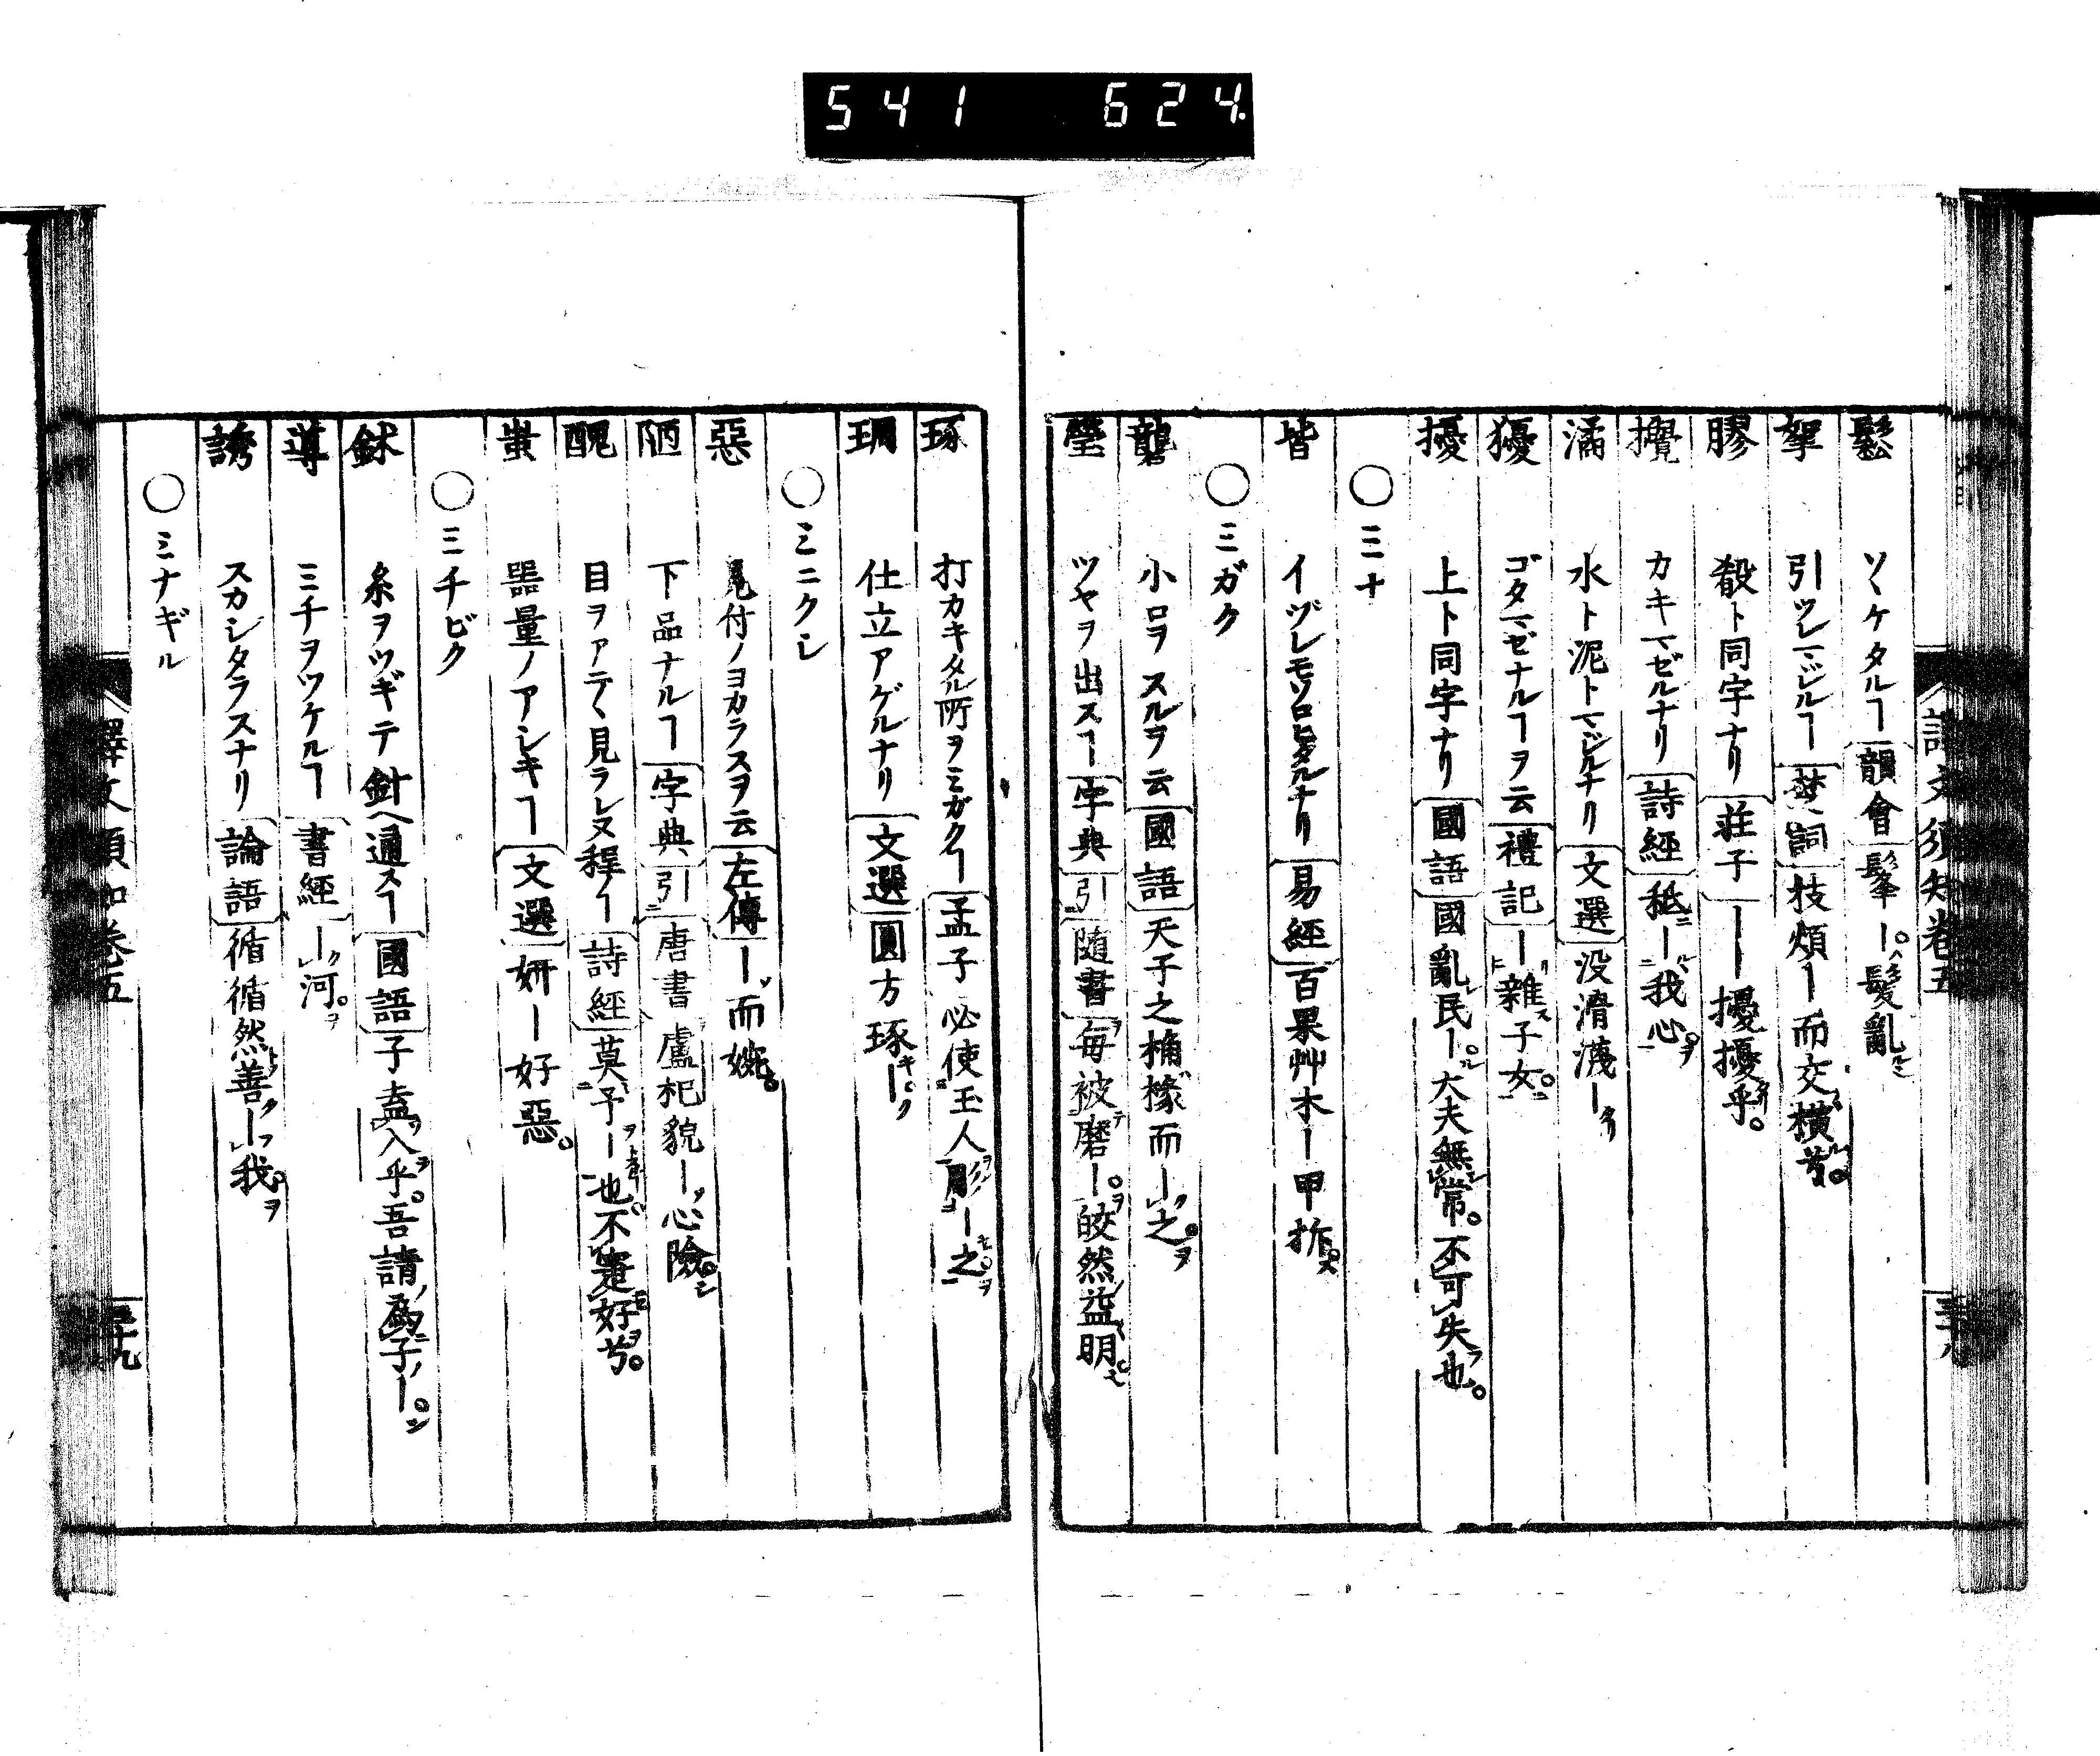 541 624
譯文須知卷五
鬆 ソヽケタルヿ 韻會 髼ー髮亂
挐 引ツレマジルヿ 楚詞 枝煩ー而交橫兮。
膠 殽ト同字ナリ 莊子 ーー擾擾乎。
攪 カキマゼルナリ 詩經 秪ー我心。
潏 水ト泥トマジルナリ 文選 没滑瀎ー
獶 ゴタマゼナルヿヲ云 禮記 ー雜子女。
擾 上ト同字ナリ 國語 國亂民ー。大夫無常。不可失也。
○ミナ
皆 イヅレモソロヒタルナリ 易經 百果艸木ー甲拆。
○ミガク
礱 小口ヲスルヲ云 國語 天子之桷椽而ー之。
瑩 ツヤヲ出スヿ 字典 引 隨書 每被磨ー。皎然益明
琢 打カキタル所ヲミガクヿ 孟子 必使玉人彫ー之
琱 仕立アゲルナリ 文選 圓方琢ー
○ミニクシ
惡 見付ノヨカラヌヲ云 左傳 ー而婉。
陋 下品ナルヿ 字典 引 唐書 盧杞貌ー心險。
醜 目ヲアテヽ見ラレヌ程ノヿ 詩經 莫予ー也不寁好兮。
蚩 器量ノアシキヿ 文選 妍ー好惡。
○ミチビク
鉥 糸ヲツギテ針ヘ通スヿ 國語 子盍入乎。吾請爲子ー。
導 ミチヲツケルヿ 書經 ー河。
誘 スカシタラスナリ 論語 循循然善ー我。
○ミナギル
譯文須知卷五